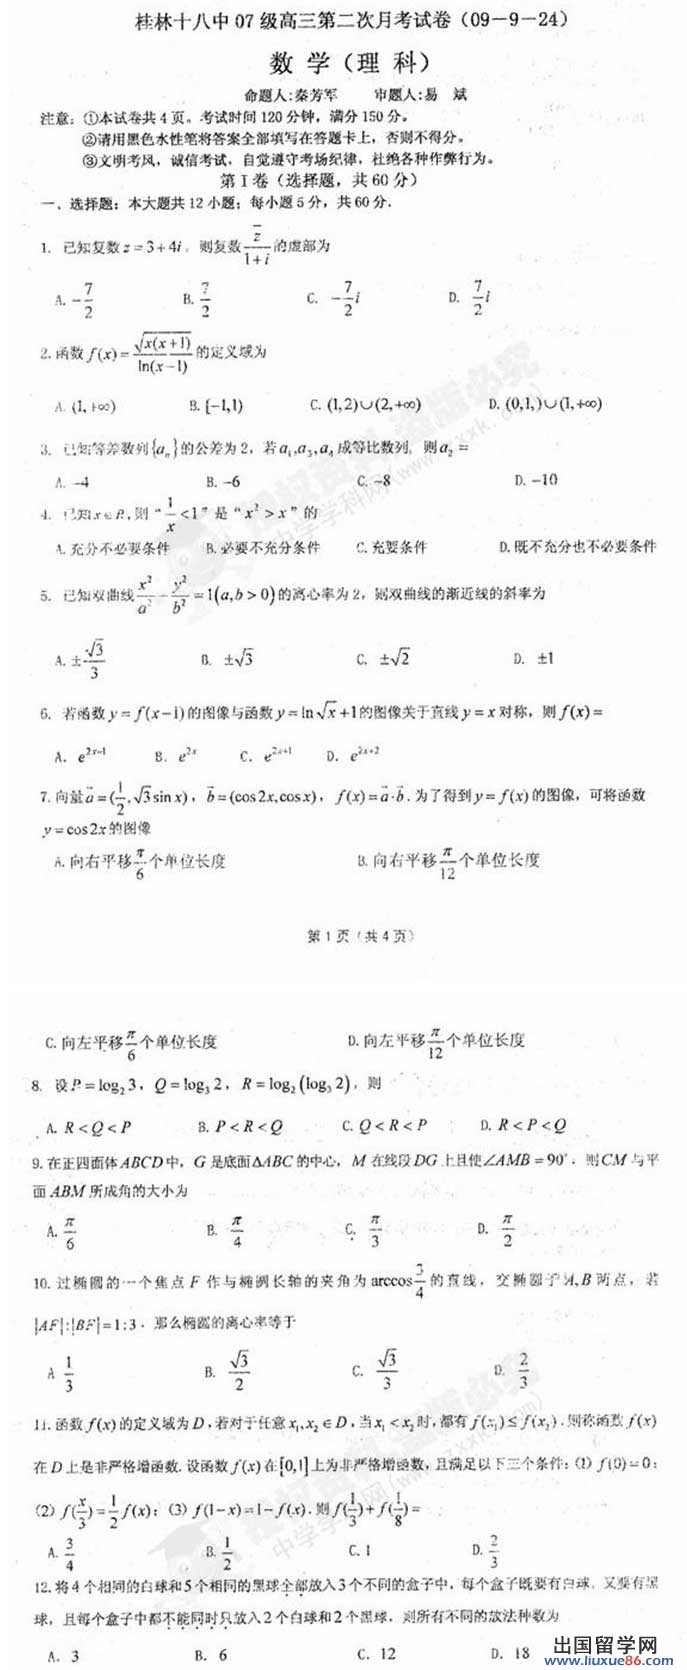 桂林十八中07级高三第二次月考试卷（09－9－24）
数 学（理 科）
命题人:秦芳军 审题人:易 斌
注意：①本试卷共4页。考试时间120分钟，满分150分。
②请用黑色水性笔将答案全部填写在答题卡上，否则不得分。
③文明考风，诚信考试，自觉遵守考场纪律，杜绝各种作弊行为。
第Ⅰ卷（选择题，共60分）
一、选择题：本大题共12小题；每小题5分，共60分．
1. 已知复数z=3+4i，则复数z̄/(1+i)的虚部为
A. -7/2 B. 7/2 C. -7/2 i D. 7/2 i
2.函数f(x)=√(x(x+1))/ln(x-1)的定义域为
A. (1,+∞) B. [-1,1) C. (1,2)∪(2,+∞) D. (0,1,)∪(1,+∞)
3. 已知等差数列{aₙ}的公差为2，若a₁,a₃,a₄成等比数列，则a₂=
A. -4 B. -6 C. -8 D. -10
4. 已知x∈R,则“1/x<1”是“x²>x”的
A.充分不必要条件 B.必要不充分条件 C.充要条件 D.既不充分也不必要条件
5. 已知双曲线x²/a²-y²/b²=1(a,b>0)的离心率为2，则双曲线的渐近线的斜率为
A. ±√3/3 B. ±√3 C. ±√2 D. ±1
6. 若函数y=f(x-1)的图像与函数y=ln√x+1的图像关于直线y=x对称，则f(x)=
A. e²ˣ⁻¹ B. e²ˣ C. e²ˣ⁺¹ D. e²ˣ⁺²
7.向量a⃗=(1/2,√3sinx)，b⃗=(cos2x,cosx)，f(x)=a⃗·b⃗.为了得到y=f(x)的图像，可将函数
y=cos2x的图像
A.向右平移π/6个单位长度 B.向右平移π/12个单位长度
第1页（共4页）
C.向左平移π/6个单位长度 D.向左平移π/12个单位长度
8. 设P=log₂3，Q=log₃2，R=log₂(log₃2)，则
A. R<Q<P B. P<R<Q C. Q<R<P D. R<P<Q
9.在正四面体ABCD中，G是底面ΔABC的中心，M在线段DG上且使∠AMB=90°．则CM与平
面ABM所成角的大小为
A. π/6 B. π/4 C. π/3 D. π/2
10. 过椭圆的一个焦点F作与椭圆长轴的夹角为arccos3/4的直线，交椭圆于A,B两点，若
|AF|:|BF|=1:3．那么椭圆的离心率等于
A 1/3 B. √3/2 C. √3/3 D. 2/3
11.函数f(x)的定义域为D,若对于任意x₁,x₂∈D,当x₁<x₂时,都有f(x₁)≤f(x₂)．则称函数f(x)
在D上是非严格增函数.设函数f(x)在[0,1]上为非严格增函数，且满足以下三个条件：(1) f(0)=0；
(2) f(x/3)=1/2 f(x)；(3) f(1-x)=1-f(x).则f(1/3)+f(1/8)=
A. 3/4 B. 1/2 C. 1 D. 2/3
12.将4个相同的白球和5个相同的黑球全部放入3个不同的盒子中，每个盒子既要有白球，又要有黑
球，且每个盒子中都不能同时只放入2个白球和2个黑球．则所有不同的放法种数为
A. 3 B. 6 C. 12 D. 18
出国留学网
www.liuxue86.com